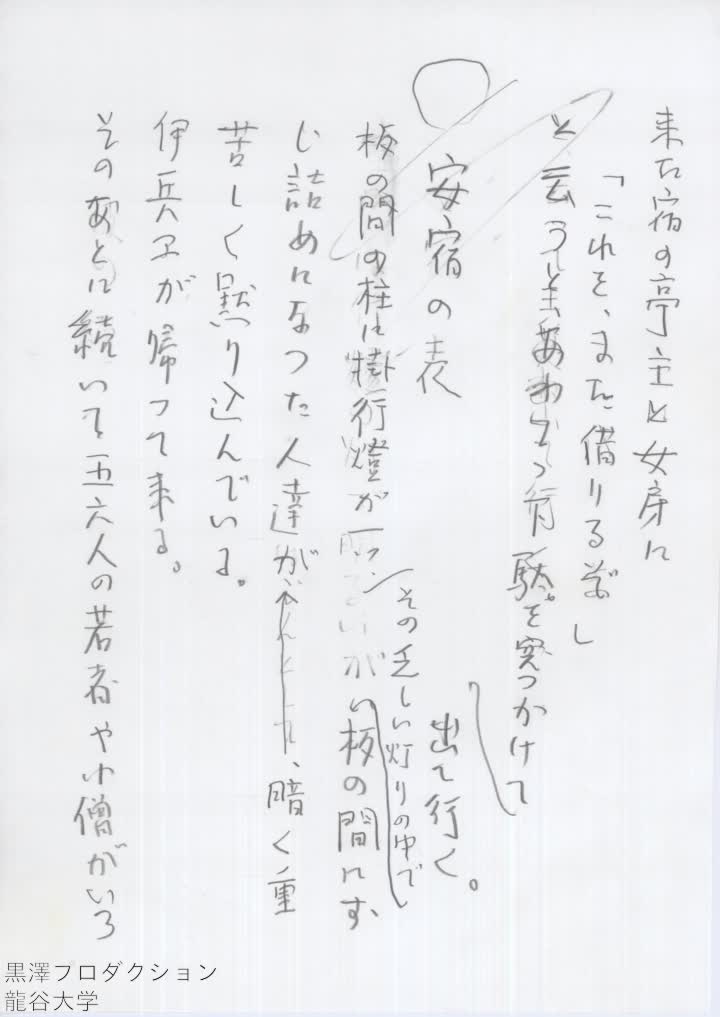 来た宿の亭主と女房に
「これを、また借りるぞ」
と云うと、あわてて下駄を突つかけて
出て行く。
○ 安宿の表
板の間の柱に掛行燈が一つ。
その乏しい灯りの中で
い板の間にす
し詰めになつた人達が、暗く重
苦しく黙り込んでいる。
伊兵エが帰つて来る。
そのあとに続いて五六人の若者や小僧がいろ
黒澤プロダクション
龍谷大学